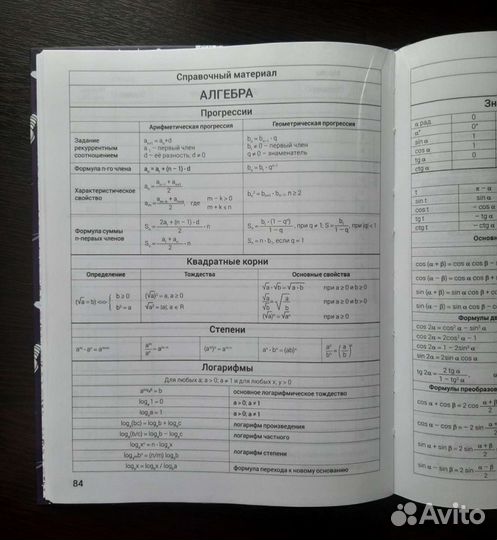 Справочный материал
АЛГЕБРА
Прогрессии
Арифметическая прогрессия Геометрическая прогрессия
Задание рекуррентным соотношением
aₙ₊₁ = aₙ+d
a₁ – первый член
d – её разность; d ≠ 0
bₙ = bₙ₋₁ · q
b₁ ≠ 0 – первый член
q ≠ 0 – знаменатель
Формула n-го члена
aₙ = a₁ + (n - 1) · d
bₙ = b₁ · qⁿ⁻¹
Характеристическое
свойство
где
m – k > 0
m + k ≤ n
bₙ² = bₙ₋₁ · bₙ₊₁, n ≥ 2
Формула суммы
n-первых членов
Sₙ = (2a₁ + (n - 1) · d)/2 · n
Sₙ = (a₁ + aₙ)/2 · n
при q ≠ 1; при |q| < 1
Sₙ = n · b₁, если q = 1
Квадратные корни
Определение Тождества Основные свойства
b ≥ 0
b² = a
(√a)² = a, a ≥ 0
√a² = |a|, a ∈ R
√a · √b = √a · b при a ≥ 0 и b ≥ 0
√a/√b = √(a/b) при a ≥ 0 и b > 0
(√a)ⁿ = √aⁿ при a ≥ 0
Степени
aᵐ · aⁿ = aᵐ⁺ⁿ
aᵐ/aⁿ = aᵐ⁻ⁿ
(aᵐ)ⁿ = aᵐ·ⁿ
aⁿ · bⁿ = (ab)ⁿ
aⁿ/bⁿ = (a/b)ⁿ
Логарифмы
Для любых a; a > 0; a ≠ 1 и для любых x, y > 0
основное логарифмическое тождество
logₐ1 = 0 a > 0; a ≠ 1
logₐa = 1 a > 0; a ≠ 1
logₐ(bc) = logₐb + logₐc логарифм произведения
logₐ(b/c) = logₐb – logₐc логарифм частного
logₐxⁿ = n · logₐx
логарифм степени
формула перехода к новому основанию
84
Зн
α рад. 0
α° 0°
sin α 0
cos α 1
tg α 0
ctg α
t
sin t
cos t
tg t
ctg t
cos (α + β) = cos α cos β –
cos (α – β) = cos α cos β
sin (α + β) = sin α cos β
sin (α – β) = sin α cos β
Формулы
cos 2α = cos² α – sin² α
cos 2α = 2cos² α – 1
cos 2α = 1 – 2sin² α
tg 2α = 2 tg α/(1 – tg² α)
Формулы преобразов
cos α + cos β = 2 cos
cos α – cos β = – 2 sin
sin α + sin β = 2 sin
sin α – sin β = 2 sin (α – β)/2
Avito